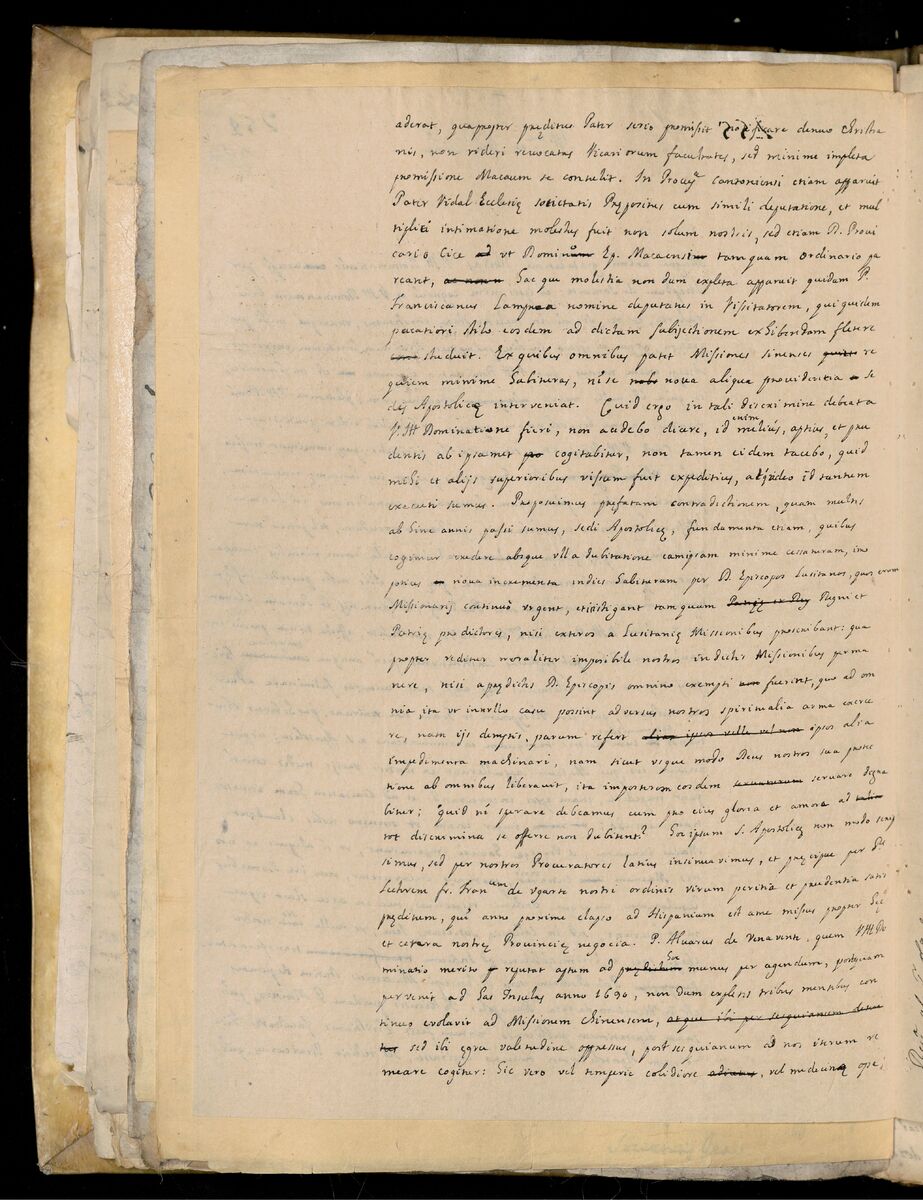 aderat, quapropter pręditus Pater serio promissit notificare denuo christia
nis, non videri revocatas Vicariorum facultates, sed minime impleta
promissione Macaum se contulit. In Provą Cantoniensi etiam apparuit
Pater Vidal Ecclesię societatis Prępositus cum simili deputatione, et mul
tiplici intimatione molestus fuit non solum nostris, sed etiam D. Provi
cario Cice ad ut Dominum Ep. Macaensem tamquam ordinario pa
reant, hac que molestia non dum expleta apparuit quidam P.
Franciscanus nomine deputatus in Vissitatorem, qui quidem
pacatiori stilo eosdem ad dictam subjectionem exhibendam flectere
studuit. Ex quibus omnibus patet Missiones sinenses re
quiem minime habituras, nisi se nova aliqua providentia se
dis Apostolicę interveniat. Quid ergo in tali discrimine debeat a
V. Ill Dominatione fieri, non audebo dicere, id enim melius, aptius, et pru
dentis ab ipsamet cogitabitur, non tamen eidem tacebo, quid
mihi et alijs superioribus vissum fuit expeditius, atque adeo id tantum
executi sumus. Proposuimus prefatam contradictionem, quam multis
ab hinc annis passi sumus, sedi Apostolicę, fundamenta etiam, quibus
cogimur credere absque ulla dubitatione eamipsam minime cessaturam, imo
potius in nova incrementa indies habituram per D. Episcopos Lusitanos, quos eorum
Missionarij continuò urgent, et instigant tamquam Patrię et Reg Regni et
Patrię proditores, nisi exteros a Lusitanię Missionibus proscribant: qua
propter redditur moraliter imposibile nostros in dictis Missionibus perma
nere, nisi a prędictis D. Episcopis omnino exempti non fuerint, quo ad om
nia, ita ut in nullo casu possint adversus nostros spiritualia arma exerce
re, nam ijs demptis, parum refert alias ipsos velle vel non ipsos alia
impedimenta machinari, nam sicut usque modo Deus nostros sua protec
tione ab omnibus liberavit, ita imposterum eosdem servare digna
bitur; quid ni sperare debeamus cum pro eius gloria et amore ad talia
tot discrimina se offerre non dubitent? Hoc ipsum S. Apostolicę non modo scrip
simus, sed per nostros Procuratores latius insinuavimus, et pręcipue per Pe
Lectorem fr. Franum de Ugarte nostri ordinis virum peritia et prudentia satis
pręditum, qui anno proxime elapso ad Hispaniam est a me missus propter hęc
et cetera nostrę Provincię negocia. P. Alvarus de Venavente, quem V Ill Do
minatio merito reputat aptum ad prędictum hoc munus peragendum, postquam
pervenit ad has Insulas anno 1690, non dum expletis tribus mensibus con
tinuo evolavit ad Missionem chinensem, atque ibi per sesquianum deten
tus sed ibi ęgra valetudine oppressus, post sesquianum ad nos iterum re
meare cogitur: hic vero vel temperie calidiore , vel medicinę ope